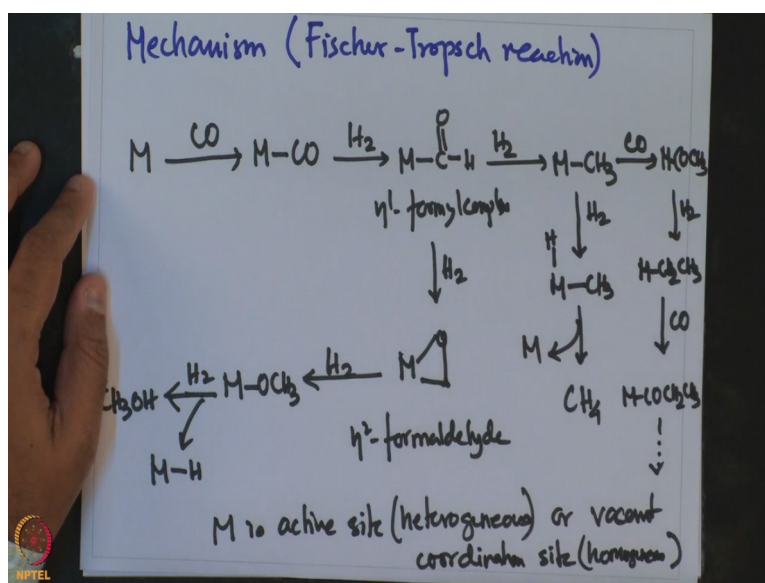 Mechanism (Fischer-Tropsch reaction)
O
M CO M-CO H2 M-C-H H2 M-CH3 CO M-COCH3
η1-formylcomplex
H2 H2 H2
H
M-CH3 M-CH2CH3
M CO
CH3OH H2 M-OCH3 H2 M O CH4 M-COCH2CH3
M-H η2-formaldelyde
M is active site (heterogeneous) or vacant
coordination site (homogeneous)
NPTEL